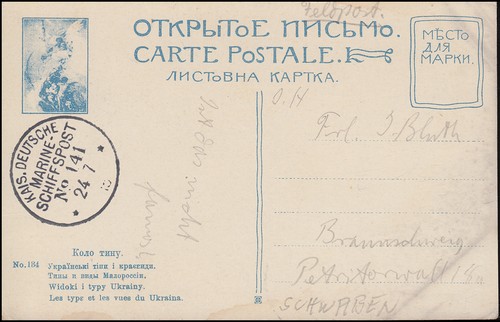 Feldpost.
ОТКРЫТОЕ ПИСЬМО.
CARTE POSTALE.
ЛИСТОВНА КАРТКА.
МѢСТО
ДЛЯ
МАРКИ.
O.H
Frl. J. Blüth
Braunschweig
Petritorwall
SCHWABEN
KAIS. DEUTSCHE
MARINE-
SCHIFFSPOST
No 141
* 24 7 *
Коло тину.
No. 184
Українські тіпи і краєвиди.
Типы и виды Малороссіи.
Widoki i typy Ukrainy.
Les type et les vues du Ukraina.